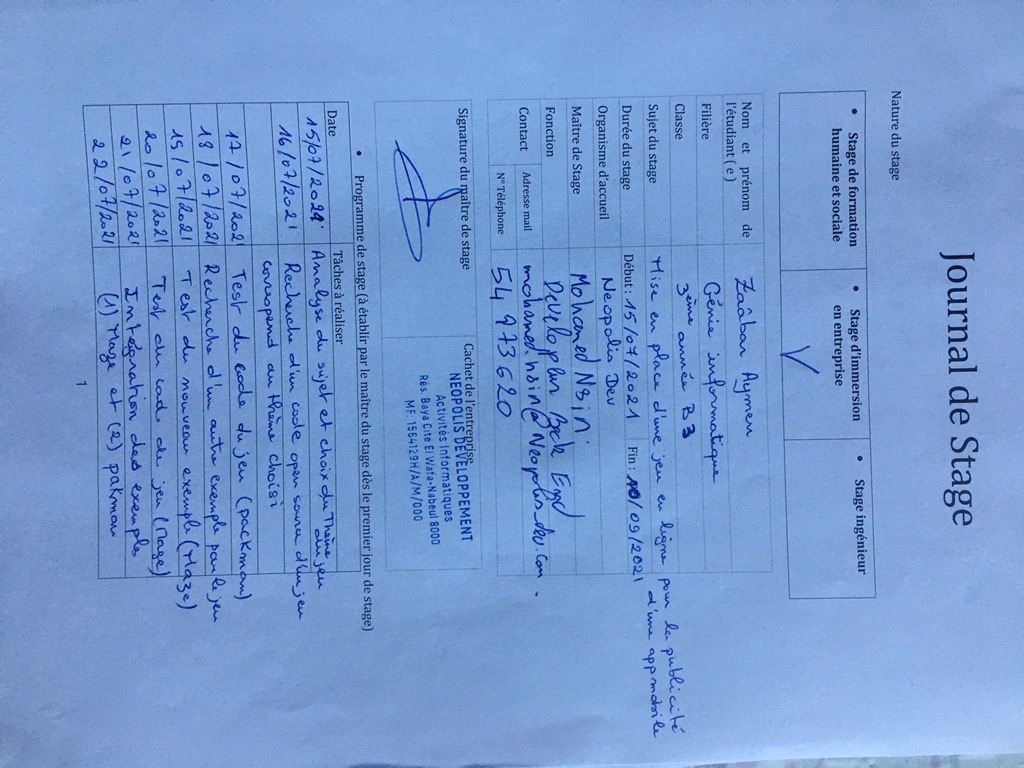 Journal de Stage
Nature du stage
• Stage de formation humaine et sociale
• Stage d'immersion en entreprise
• Stage ingénieur
V
Nom et prénom de l'étudiant(e) Zaâbar Aymen
Filière Génie informatique
Classe 3ème année B3
Sujet du stage Mise en place d'une jeu en ligne pour la publicité
d'une app mobile
Durée du stage Début : 15/07/2021 Fin : 10/09/2021
Organisme d'accueil Neopolis Dev
Maître de Stage Mohamed Nsiri
Fonction Back End
Contact Adresse mail
N° Téléphone 54 973 620
Signature du maître de stage
Cachet de l'entreprise
NEOPOLIS DEVELOPPEMENT
Activités Informatiques
Rés. Baya Cite El Wafa-Nabeul 8000
MF: 1564129H/A/M/000
• Programme de stage (à établir par le maître du stage dès le premier jour de stage)
Date Tâches à réaliser
15/07/2021 Analyse du sujet et choix du Thème
du jeu
16/07/2021 Recherche d'un code open source d'un jeu
correspend au thème choisi
17/07/2021 Test du code du jeu (packman)
18/07/2021 Recherche d'un autre exemple par le jeu
19/07/2021 Test du nouveau exemple (Maze)
20/07/2021 Test du code de jeu (Maze)
21/07/2021 Intégration des exemples
22/07/2021 (1) Maze et (2) pakman
1